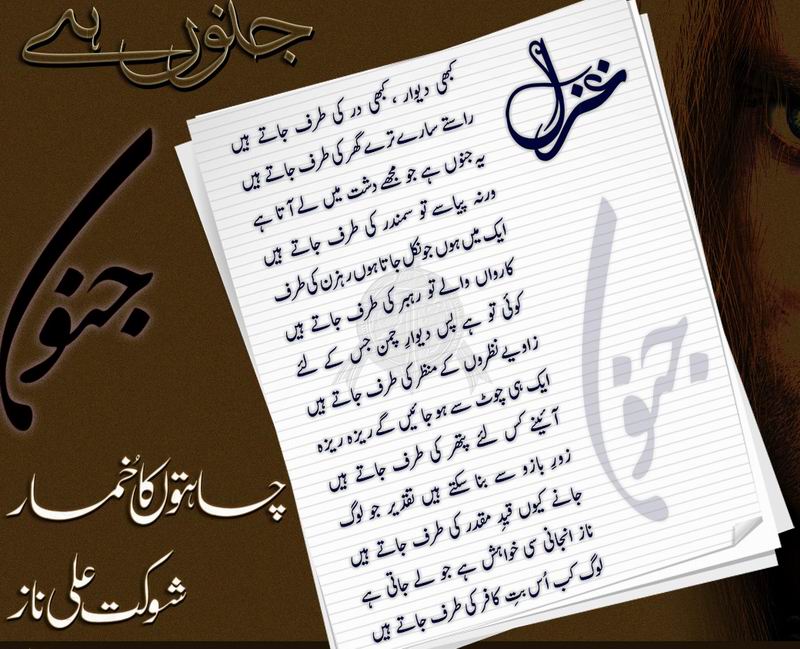 جنوں ہے
غزل
کبھی دیوار ، کبھی در کی طرف جاتے ہیں
راستے سارے ترے گھر کی طرف جاتے ہیں
یہ جنوں ہے جو مجھے دشت میں لے آتا ہے
ورنہ پیاسے تو سمندر کی طرف جاتے ہیں
ایک میں ہوں جو نکل جاتا ہوں رہزن کی طرف
کارواں والے تو رہبر کی طرف جاتے ہیں
کوئی تو ہے پس دیوارِ چمن جس کے لئے
زاویے نظروں کے منظر کی طرف جاتے ہیں
ایک ہی چوٹ سے ہو جائیں گے ریزہ ریزہ
آئینے کس لئے پتھر کی طرف جاتے ہیں
زورِ بازو سے بنا سکتے ہیں تقدیر جو لوگ
جانے کیوں قیدِ مقدر کی طرف جاتے ہیں
ناز انجانی سی خواہش ہے جو لے جاتی ہے
لوگ کب اُس بتِ کافر کی طرف جاتے ہیں
جنوں
جنوں
چاہتوں کا خُمار
شوکت علی ناز